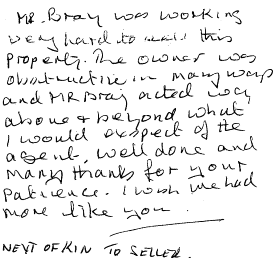 MR. Bray was working
very hard to sell this
Property. The owner was
obstructive in many ways
and MR Bray acted way
above & beyond what
I would expect of the
agent, well done and
Many thanks for your
Patience. I wish we had
more like you.
NEXT OF KIN TO SELLER.